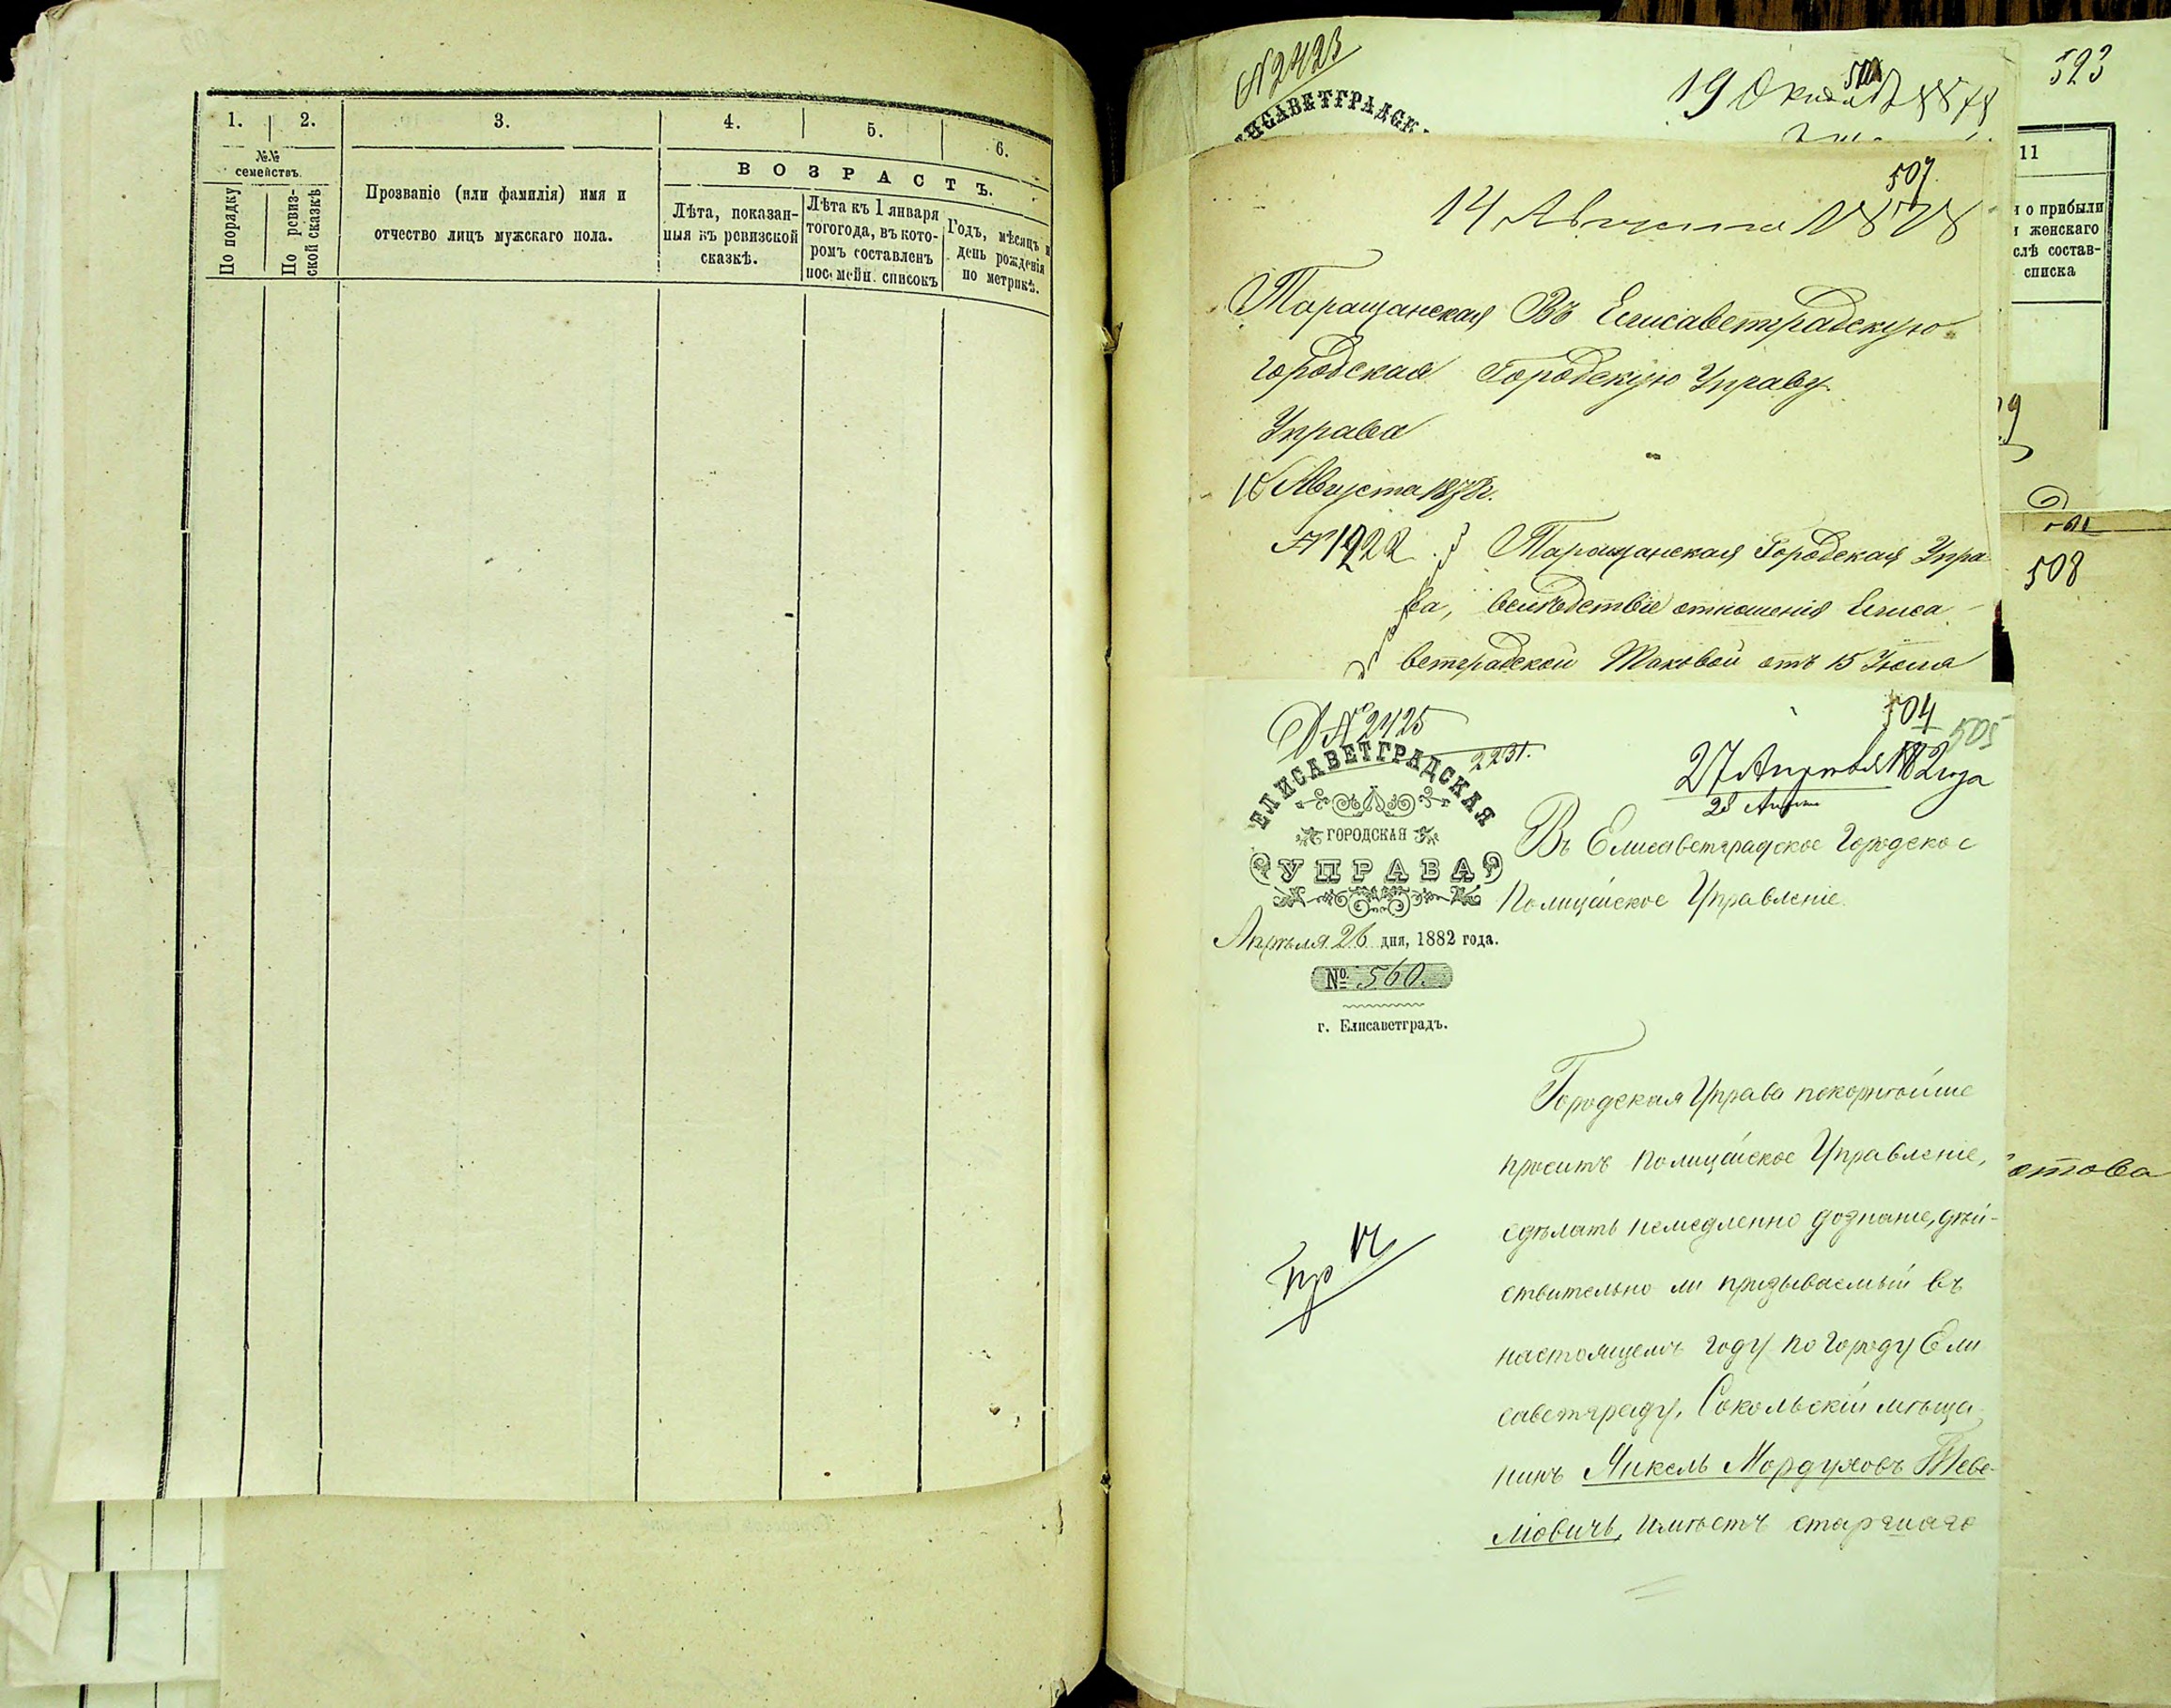 1. 2. 3. 4. 5. 6.
№№
семействъ.
По порядку
По ревиз-
ской сказкѣ
Прозваніе (или фамилія) имя и
отчество лицъ мужскаго пола.
ВОЗРАСТЪ.
Лѣта, показан-
ныя въ ревизской
сказкѣ.
Лѣта къ 1 января
тогогода, въ кото-
ромъ составленъ
посемейн. списокъ
Годъ, мѣсяцъ и
день рожденія
по метрикѣ.
№ 2423
ЕЛИСАВЕТГРАДСК
19
523
11
и о прибыли
и женскаго
слѣ состав-
списка
507
14 Августа 1878
Таращанская Въ Елисаветградскую
городская Городскую Управу.
Управа
Августа 1878 г.
№ 1922
Таращанская Городская Упра-
ва, вслѣдствіе отношенія Елиса-
ветградской Таковой отъ 15 Іюля
508
504
505
№ 2425
2231.
27 Апрѣля 1882 года
28 Апрѣля
ЕЛИСАВЕТГРАДСКАЯ
ГОРОДСКАЯ
УПРАВА
Апрѣля 26 дня, 1882 года.
№ 560.
г. Елисаветградъ.
Въ Елисаветградское Городское
Полицейское Управленіе.
Городская Управа покорнѣйше
проситъ Полицейское Управленіе,
сдѣлать немедленно дознаніе, дѣй-
ствительно ли призываемый въ
настоящемъ году по городу Ели
саветграду, Сокольскій мѣща-
нинъ Янкель Мордуховъ Теве-
ліовичъ, имѣетъ старшаго
етова